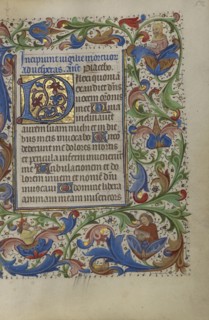 Incipiunt vigilie mortuor
ad vesperas. añ Placebo.
ilexi quoniã
exaudiet dñs
vocem oronis
mee Quia
inclinavit
aurem suam michi et in die
bus meis invocabo
dederunt me dolores mortis
et pericula inferni invenerunt
me Tribulacionem et do
lorem inveni et nomen dñi
invocavi O domine libera
animam meam misericors